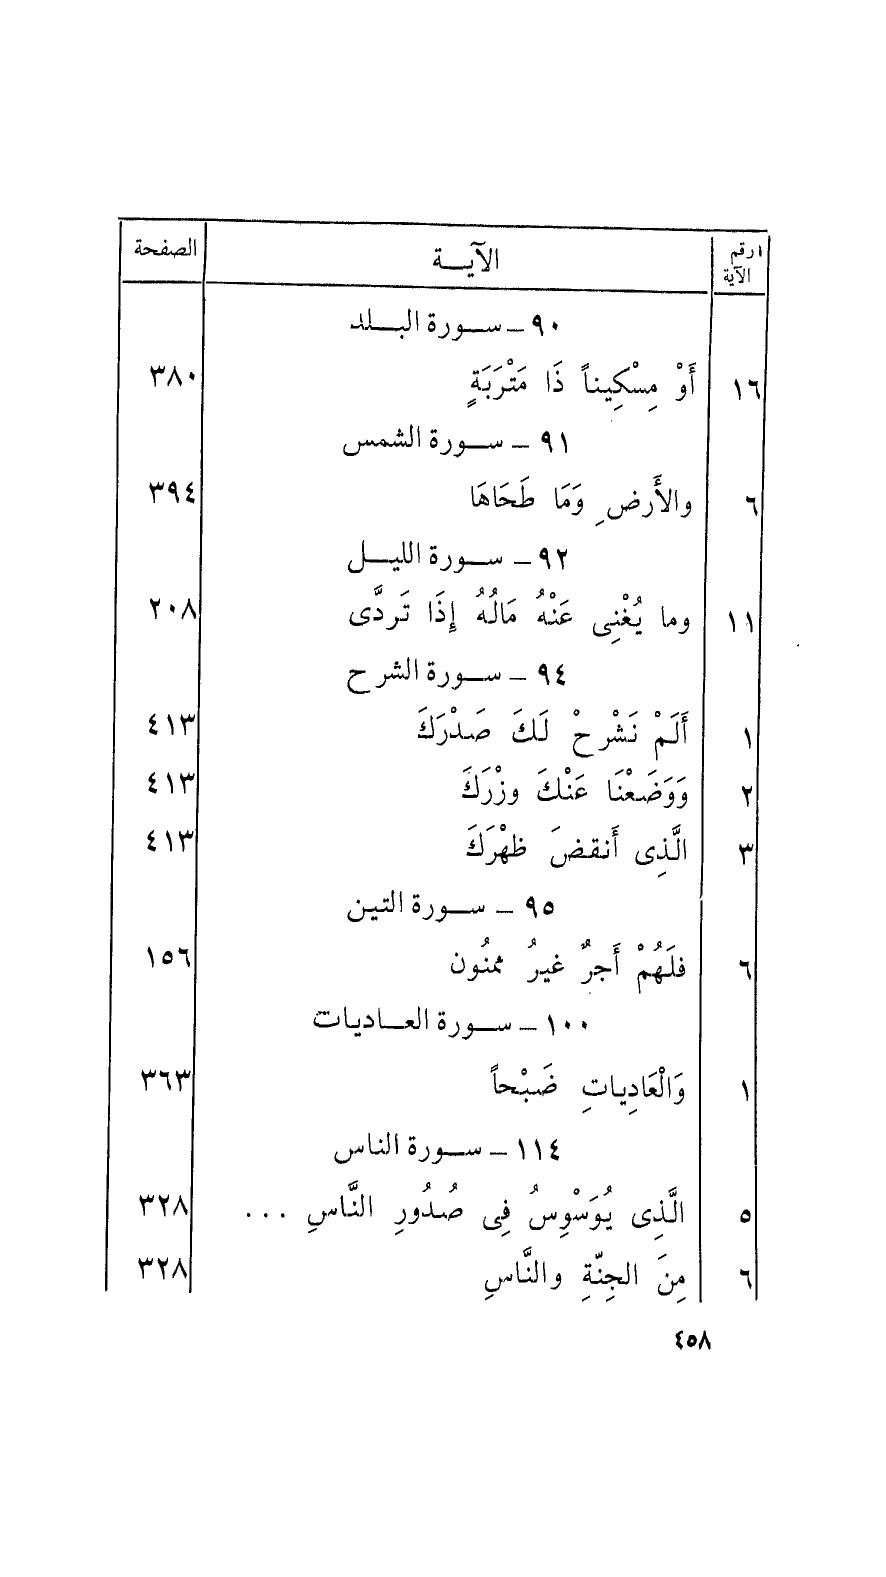 رقم الآية الآيـــة الصفحة
٩٠ ــ ســورة البــلد
١٦ أَوْ مِسْكِيناً ذَا مَتْرَبَةٍ ٣٨٠
٩١ ــ ســورة الشمس
٦ والأَرضِ وَمَا طَحَاهَا ٣٩٤
٩٢ ــ ســورة الليــل
١١ وما يُغْنِى عَنْهُ مَالُهُ إِذَا تَردَّى ٢٠٨
٩٤ ــ ســورة الشرح
١ أَلَمْ نَشْرحْ لَكَ صَدْرَكَ ٤١٣
٢ وَوَضَعْنَا عَنْكَ وزْرَكَ ٤١٣
٣ الَّذِى أَنقضَ ظهْرَكَ ٤١٣
٩٥ ــ ســورة التين
٦ فلَهُمْ أَجرٌ غيرُ ممنُون ١٥٦
١٠٠ ــ ســورة العــاديات
١ وَالْعَادِياتِ ضَبْحاً ٣٦٣
١١٤ ــ ســورة الناس
٥ الَّذِى يُوَسْوِسُ فِى صُدُورِ النَّاسِ ... ٣٢٨
٦ مِنَ الجِنّةِ والنَّاسِ ٣٢٨
٤٥٨